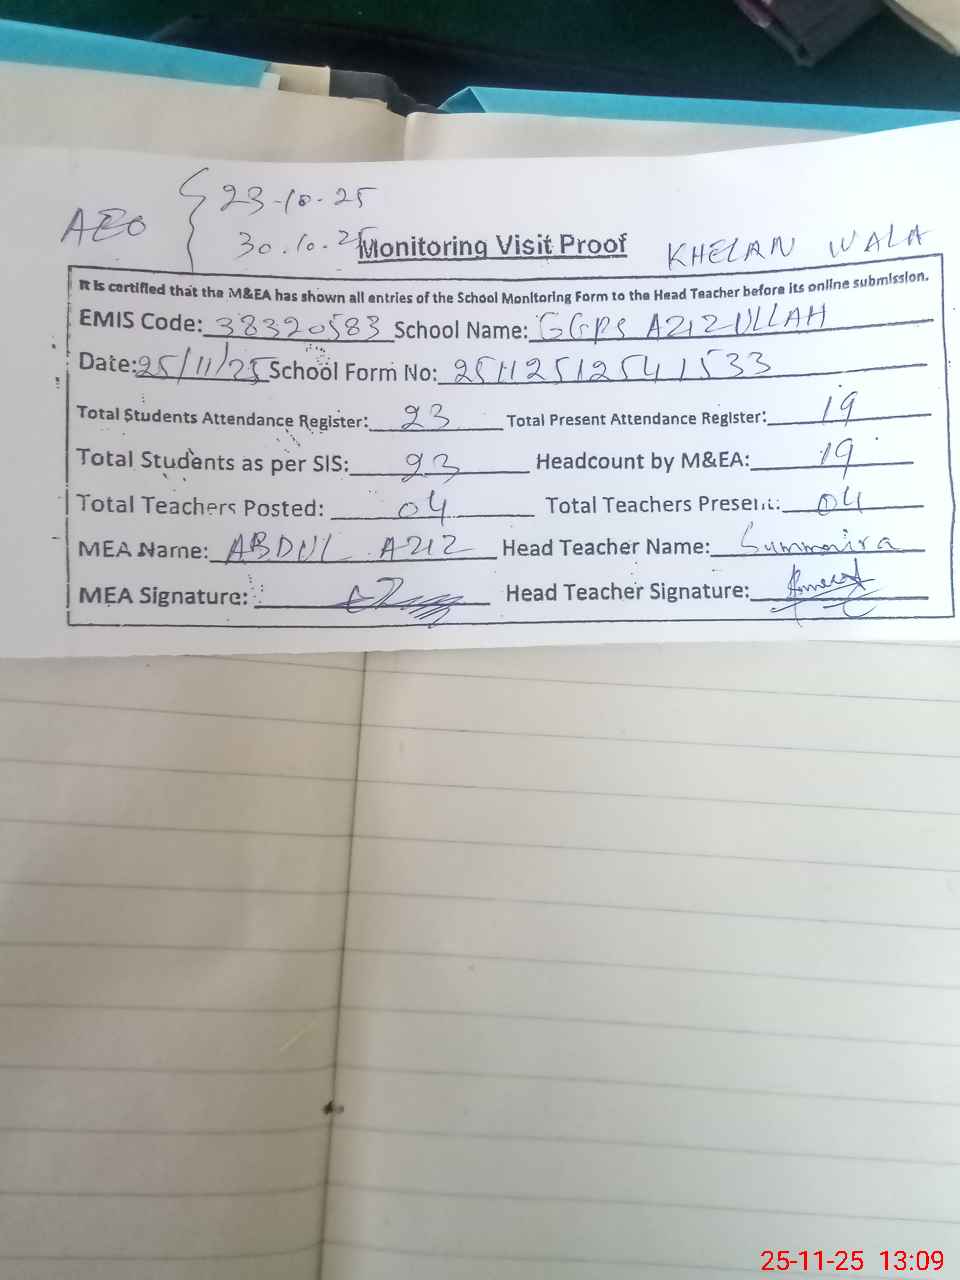 AEO { 23-10-25
30.10.25
Monitoring Visit Proof KHELAN WALA
It is certified that the M&EA has shown all entries of the School Monitoring Form to the Head Teacher before its online submission.
EMIS Code: 38320583 School Name: GGPS AZIZULLAH
Date: 25/11/25 School Form No: 2511251254 1533
Total Students Attendance Register: 23 Total Present Attendance Register: 19
Total Students as per SIS: 23 Headcount by M&EA: 19
Total Teachers Posted: 04 Total Teachers Present: 04
MEA Name: ABDUL AZIZ Head Teacher Name: Summaira
MEA Signature: Head Teacher Signature:
25-11-25 13:09